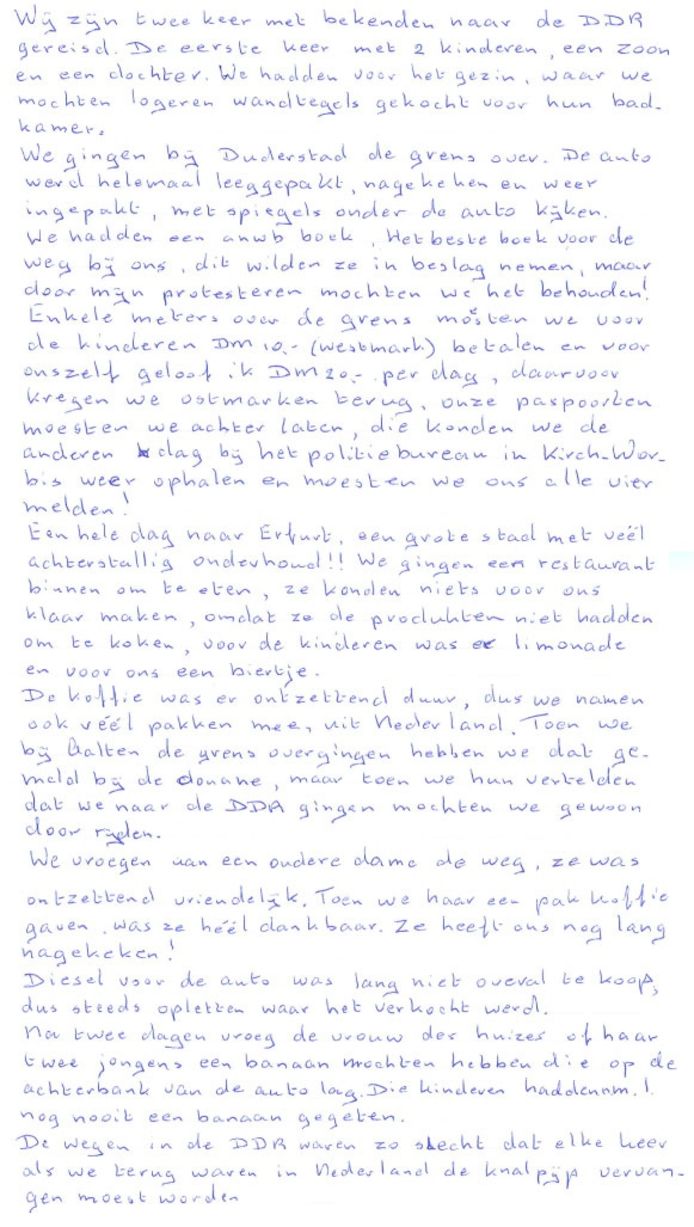 Wij zijn twee keer met bekenden naar de DDR
gereisd. De eerste keer met 2 kinderen, een zoon
en een dochter. We hadden voor het gezin, waar we
mochten logeren wandtegels gekocht voor hun bad-
kamer.
We gingen bij Duderstad de grens over. De auto
werd helemaal leeggepakt, nagekeken en weer
ingepakt, met spiegels onder de auto kijken.
We hadden een anwb boek, Het beste boek voor de
weg bij ons, dit wilden ze in beslag nemen, maar
door mijn protesteren mochten we het behouden!
Enkele meters over de grens moesten we voor
de kinderen DM 10.- (westmark) betalen en voor
onszelf geloof ik DM 20.- per dag, daarvoor
kregen we ostmarken terug, onze paspoorten
moesten we achter laten, die konden we de
anderen dag bij het politiebureau in Kirch-Wor-
bis weer ophalen en moesten we ons alle vier
melden!
Een hele dag naar Erfurt, een grote stad met veél
achterstallig onderhoud!! We gingen een restaurant
binnen om te eten, ze konden niets voor ons
klaar maken, omdat ze de produkten niet hadden
om te koken, voor de kinderen was er limonade
en voor ons een biertje.
De koffie was er ontzettend duur, dus we namen
ook véél pakken mee, uit Nederland. Toen we
bij Aalten de grens overgingen hebben we dat ge-
meld bij de douane, maar toen we hun vertelden
dat we naar de DDR gingen mochten we gewoon
door rijden.
We vroegen aan een oudere dame de weg, ze was
ontzettend vriendelijk. Toen we haar een pak koffie
gaven, was ze héél dankbaar. Ze heeft ons nog lang
nagekeken!
Diesel voor de auto was lang niet overal te koop,
dus steeds opletten waar het verkocht werd.
Na twee dagen vroeg de vrouw des huizes of haar
twee jongens een banaan mochten hebben die op de
achterbank van de auto lag. Die kinderen hadden nm. !
nog nooit een banaan gegeten.
De wegen in de DDR waren zo slecht dat elke keer
als we terug waren in Nederland de knalpijp vervan-
gen moest worden